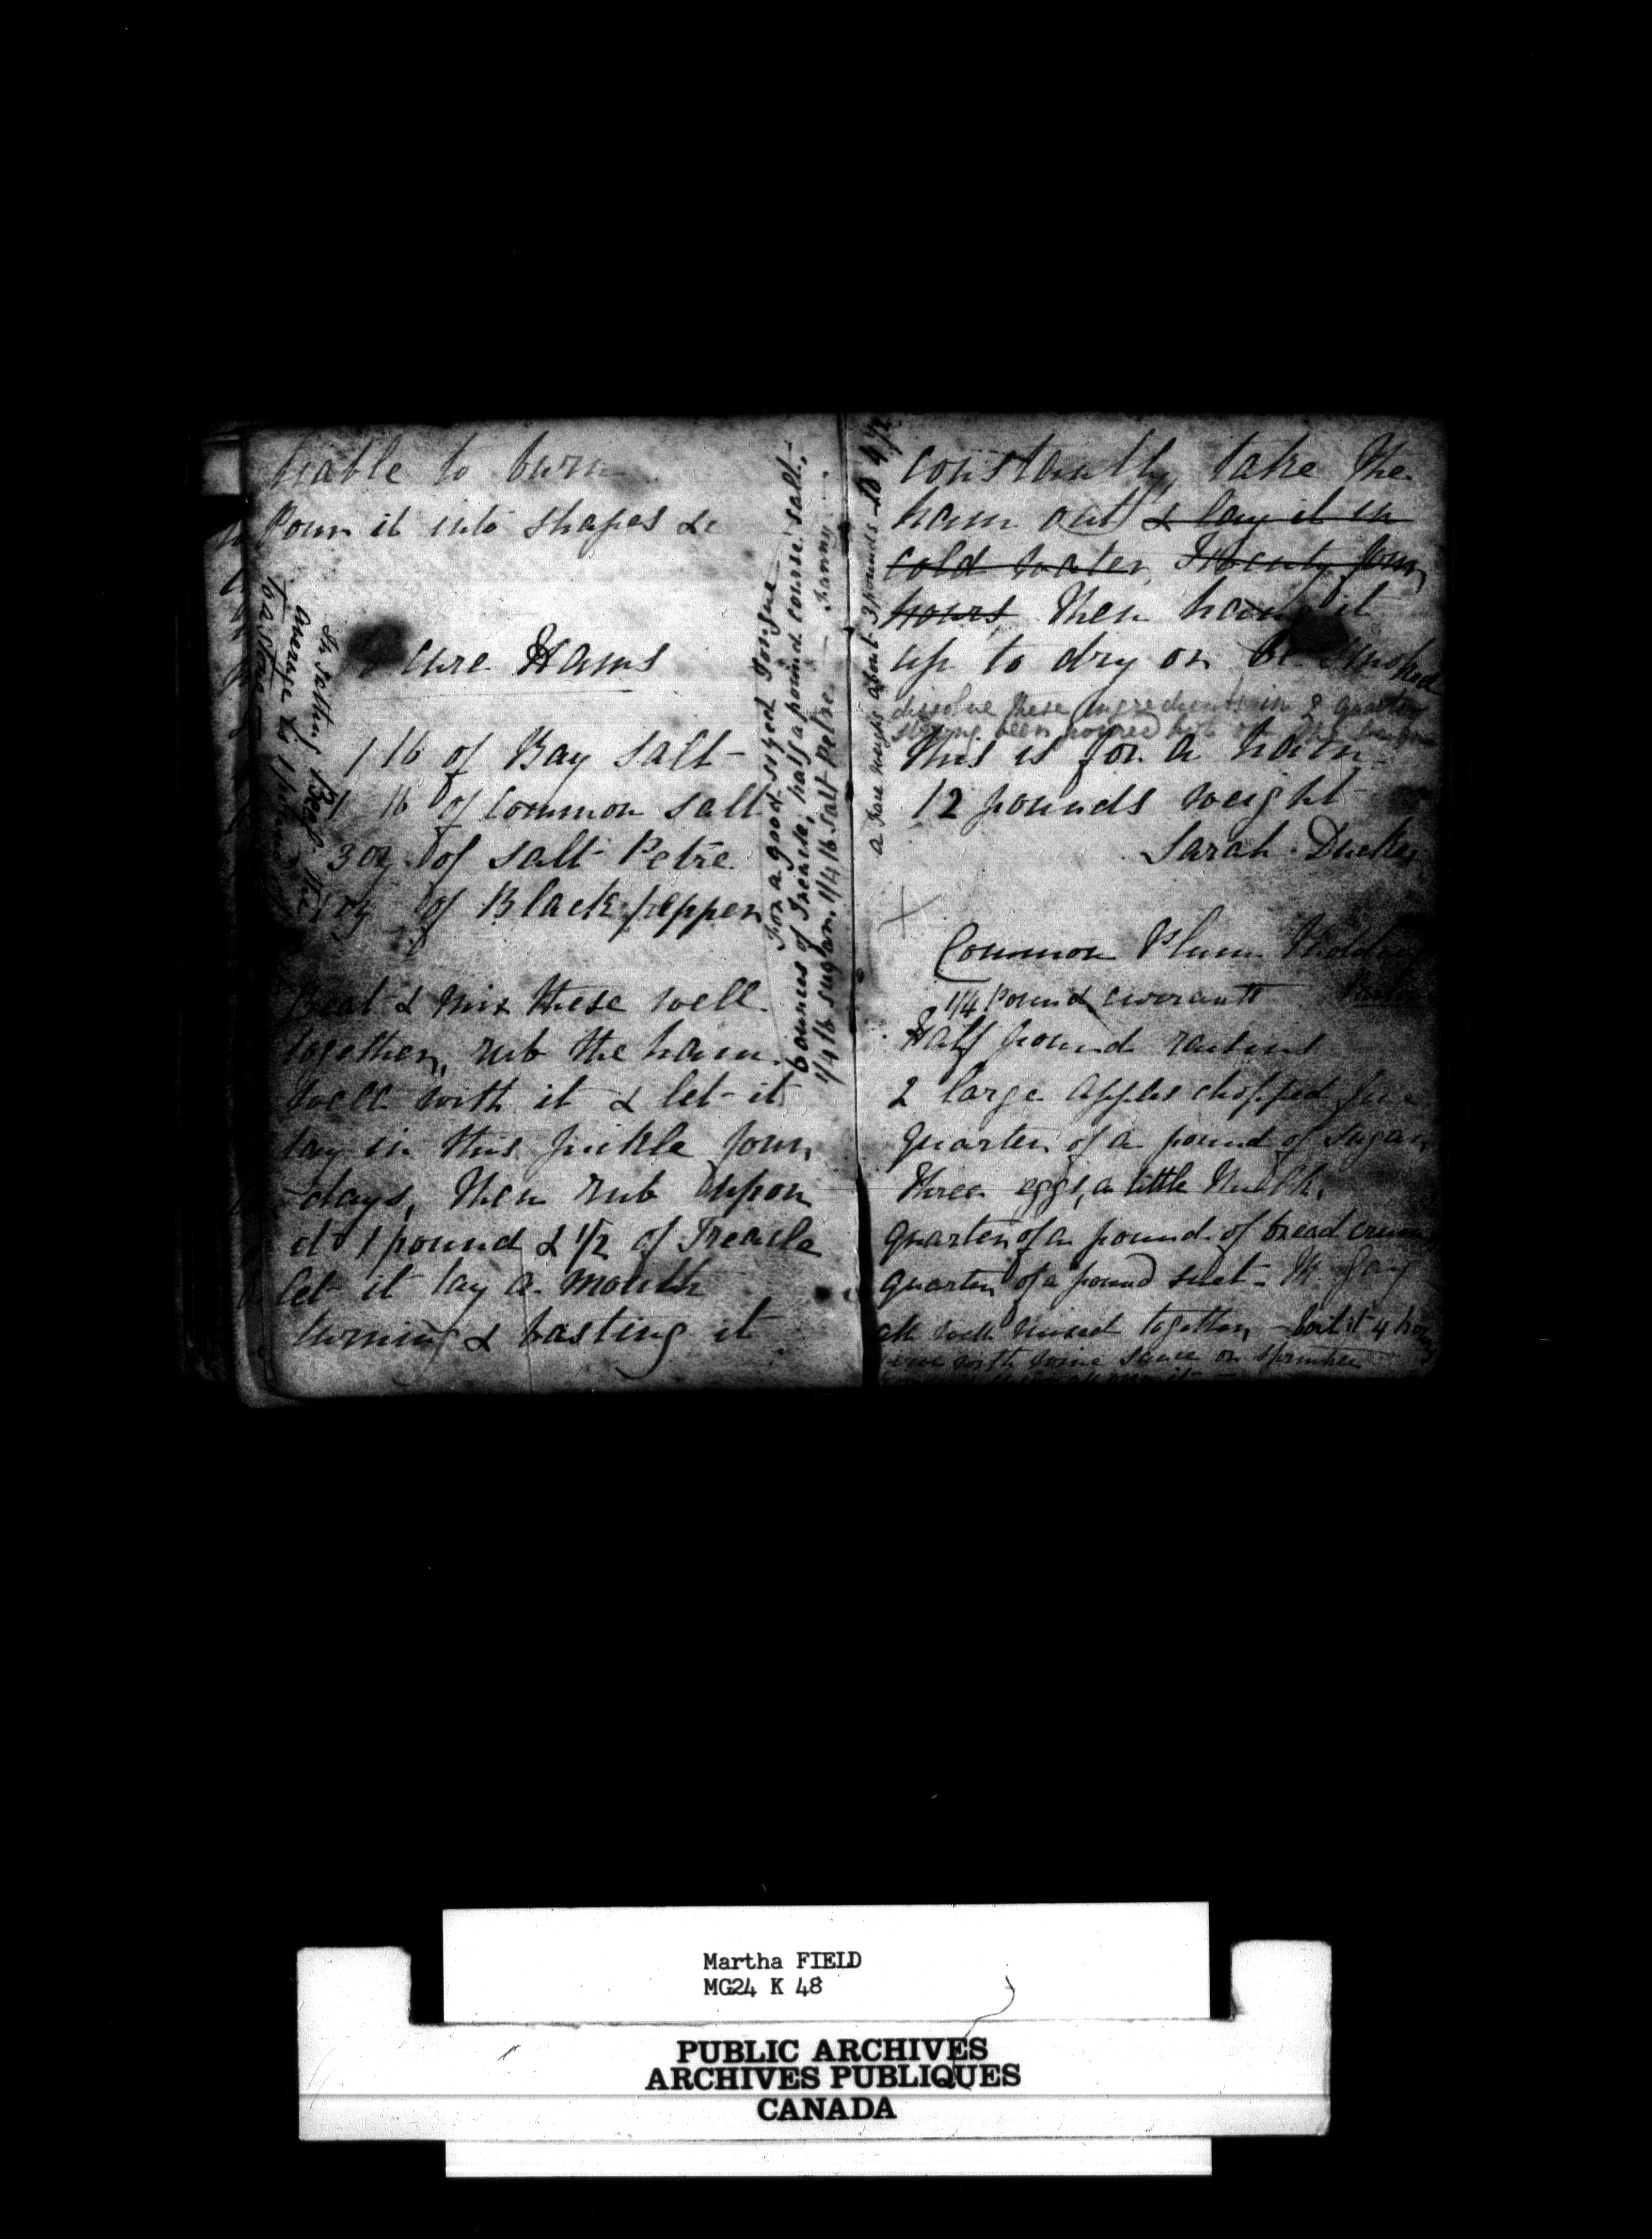 liable to burn
Pour it into shapes &c
Cure Hams
1 lb of Bay Salt
1 lb of Common Salt
3 oz of Salt Petre
1 oz of Black pepper
Beat & Mix these well
together, rub the ham
well with it & let it
lay in this pickle four
days, then rub upon
it 1 pound & 1/2 of Treacle
let it lay a Month
turning & basting it
In salting Beef the
average is 1 pound
to a stone
For a good sized Tongue
6 ounces of Treacle, half a pound course salt,
1/4 lb sugar, 1/4 lb salt Petre Fanny
a face weighs about 3 pounds to 4 1/2
constantly, take the
ham out & lay it in
cold water, Twenty four
hours then hang it
up to dry or be smoked
dissolve these ingredients in 2 quarts
This is for a ham
12 pounds weight
Sarah Ducker
Common Plum Pudding
1/4 Pound currants
Half pound raisins
2 large Apples chopped fine
quarter of a pound of Sugar
Three eggs, a little Milk,
quarter of a pound of bread crumbs
quarter of a pound suet
all well mixed together, boil it 4 hours
serve with wine sauce or
Martha FIELD
MG24 K 48
PUBLIC ARCHIVES
ARCHIVES PUBLIQUES
CANADA